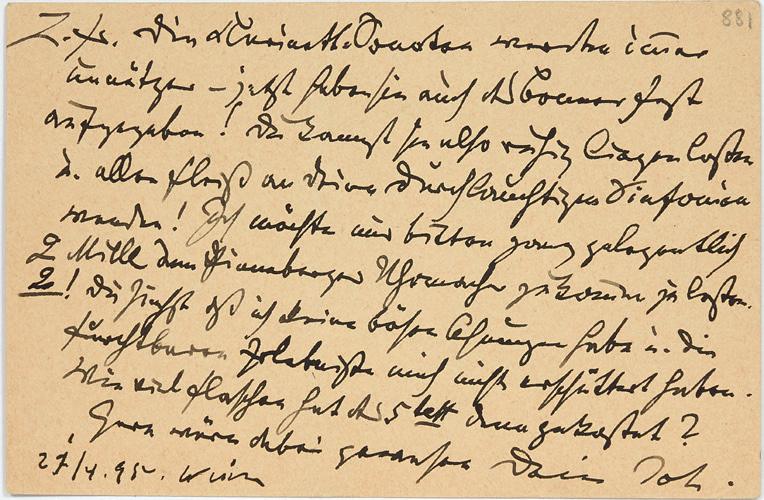 881
L. Fr. Die Clarinett-Sonaten werden immer
unnützer – jetzt haben sie auch das Bonner Fest
aufgegeben! Du kannst sie also ruhig liegen lassen
u. allen Fleiß an Deine Durchlauchtigen Sinfonien
wenden! Ich möchte nur bitten ganz gelegentlich
2 Mille dem Pinneberger Uhrmacher zukommen zu lassen.
2! Du siehst daß ich keine bösen Ahnungen habe u. die
furchtbaren Erlebniße mich nicht erschüttert haben.
Wie viel Flaschen hat das 5tett denn gekostet?
Gern wäre dabei gewesen Dein Joh.
27/4. 95. Wien